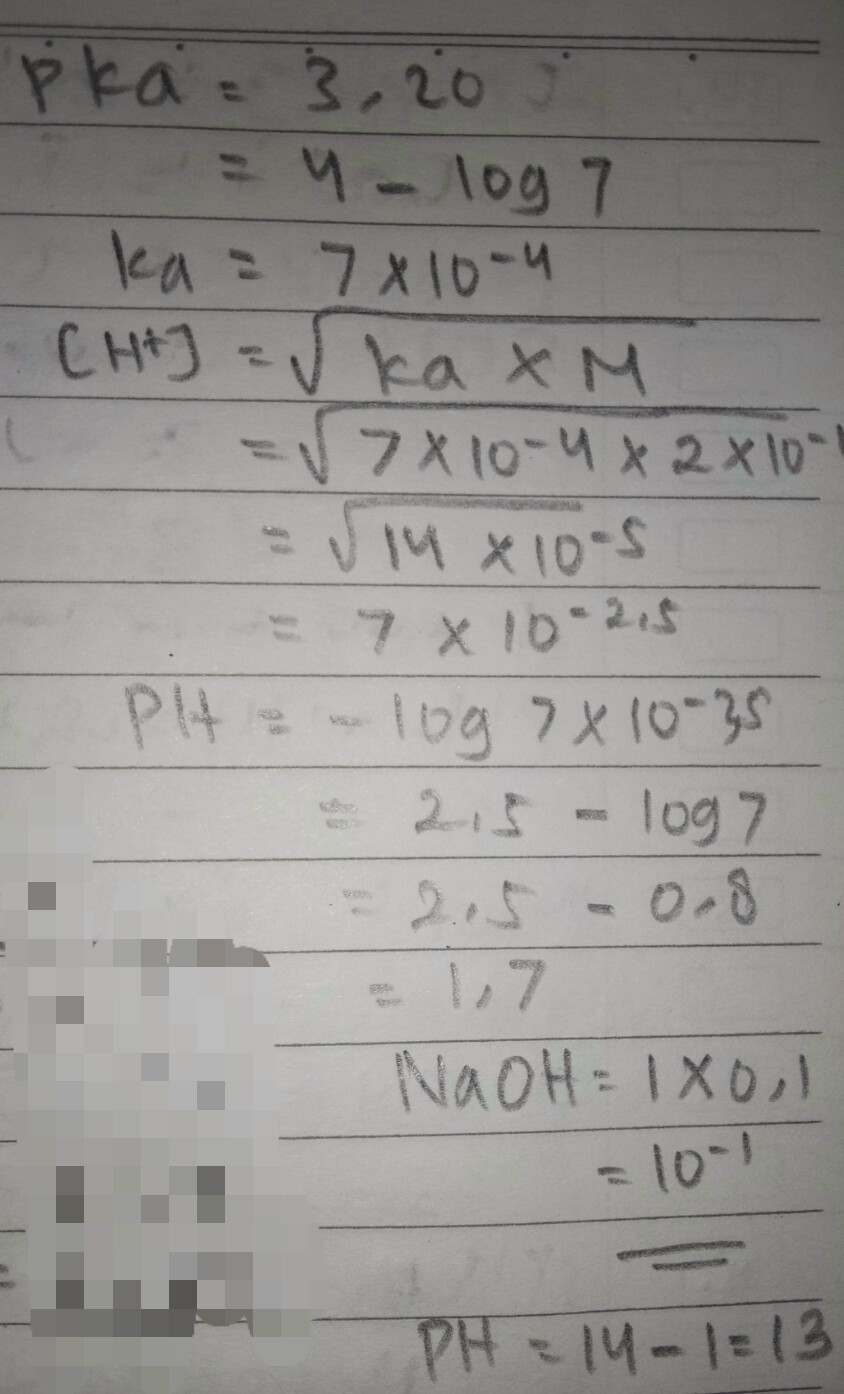 pka = 3,20
= 4 - log 7
ka = 7 x 10-4
[H+] = √ka x M
= √7 x 10-4 x 2 x 10-1
= √14 x 10-5
= 7 x 10-2,5
PH = - log 7 x 10-35
= 2,5 - log 7
= 2,5 - 0,8
= 1,7
NaOH = 1 x 0,1
= 10-1
PH = 14 - 1 = 13